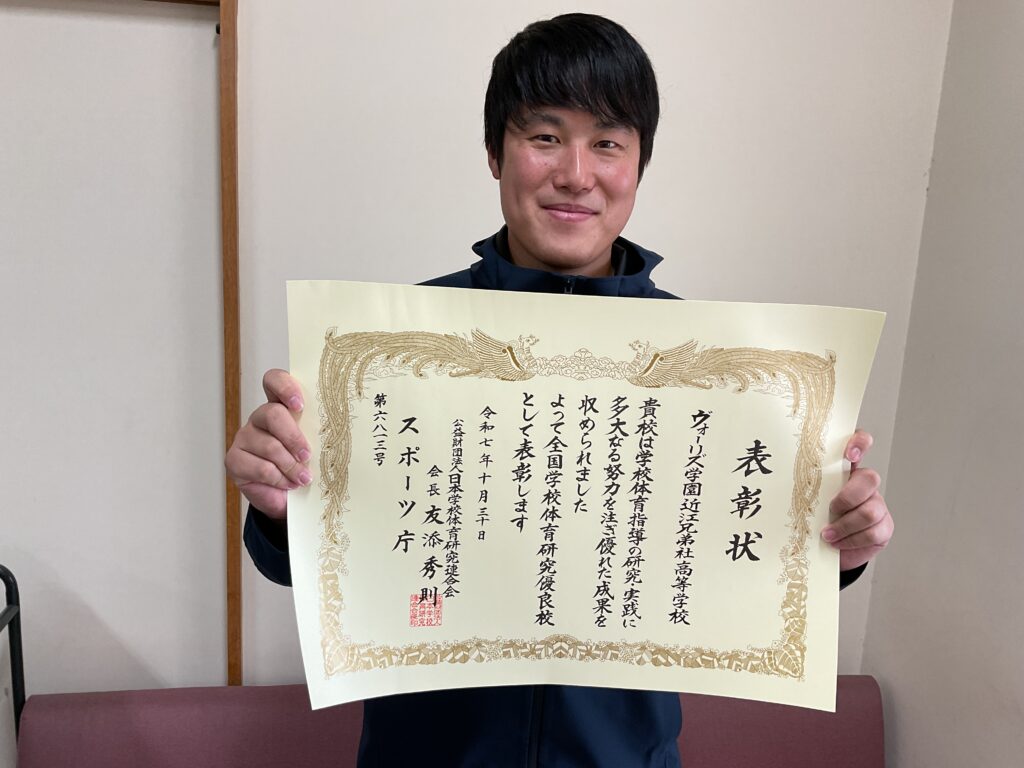 表彰状
ヴォーリズ学園近江兄弟社高等学校
貴校は学校体育指導の研究・実践に
多大なる努力を注ぎ優れた成果を
収められました
よって全国学校体育研究優良校
として表彰します
令和七年十月三十日
公益財団法人日本学校体育研究連合会
会長友添秀則
スポーツ庁
第六八一三号